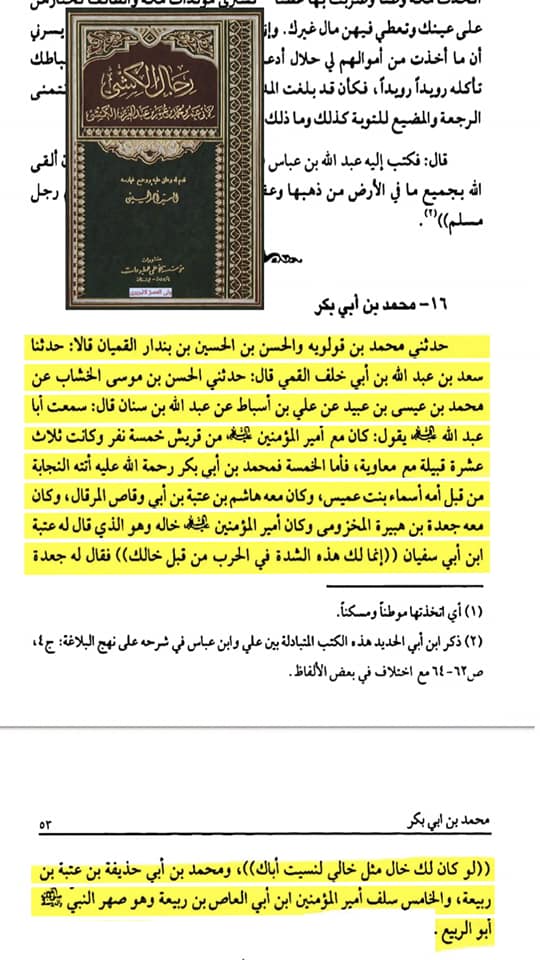 على عينك وتعطي فيهن مال غيرك. وإن
يسرني
أن ما أخذت من أموالهم لي حلال أدعـ
ـباطك
تأكله رويداً رويداً، فكأن قد بلغت المد
ـتمنى
الرجعة والمضيع للتوبة كذلك وما ذلك
قال: فكتب إليه عبد الله بن عباس
ألقى
الله بجميع ما في الأرض من ذهبها وعقـ
رجل
مسلم))(٢).
رجال الكشي
١٦- محمد بن أبي بكر
حدثني محمد بن قولويه والحسن بن الحسين بن بندار القميان قالا: حدثنا
سعد بن عبد الله بن أبي خلف القمي قال: حدثني الحسن بن موسى الخشاب عن
محمد بن عيسى بن عبيد عن علي بن أسباط عن عبد الله بن سنان قال: سمعت أبا
عبد الله عليه السلام يقول: كان مع أمير المؤمنين عليه السلام من قريش خمسة نفر وكانت ثلاث
عشرة قبيلة مع معاوية، فأما الخمسة فمحمد بن أبي بكر رحمة الله عليه أتته النجابة
من قبل أمه أسماء بنت عميس، وكان معه هاشم بن عتبة بن أبي وقاص المرقال، وكان
معه جعدة بن هبيرة المخزومي وكان أمير المؤمنين عليه السلام خاله وهو الذي قال له عتبة
ابن أبي سفيان ((إنما لك هذه الشدة في الحرب من قبل خالك)) فقال له جعدة
(١) أي اتخذتها موطناً ومسكناً.
(٢) ذكر ابن أبي الحديد هذه الكتب المتبادلة بين علي وابن عباس في شرحه على نهج البلاغة: ج٤،
ص٦٢-٦٤ مع اختلاف في بعض الألفاظ.
محمد بن ابي بكر
٥٣
((لو كان لك خال مثل خالي لنسيت أباك))، ومحمد بن أبي حذيفة بن عتبة بن
ربيعة، والخامس سلف أمير المؤمنين ابن أبي العاص بن ربيعة وهو صهر النبي ﷺ
أبو الربيع.